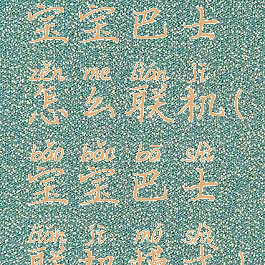 宝宝巴士
zěn me lián jī
怎么联机(
bǎo bǎo bā shì
宝宝巴士
lián jī mó shì
联机模式!